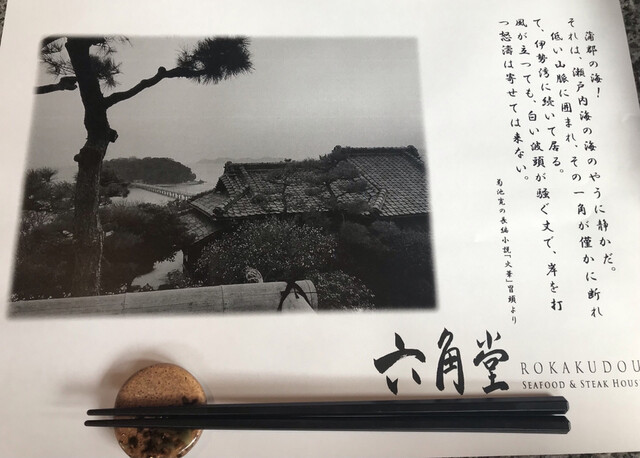 蒲郡の海！
それは、瀬戸内海の海のやうに静かだ。
低い山脈に囲まれ、その一角が僅かに断れ
て、伊勢湾に続いて居る。
風が立つても、白い波頭が騒ぐ丈で、岸を打
つ怒濤は寄せては来ない。
菊池寛の長編小説「火華」冒頭より
六角堂
ROKAKUDOU
SEAFOOD & STEAK HOUS